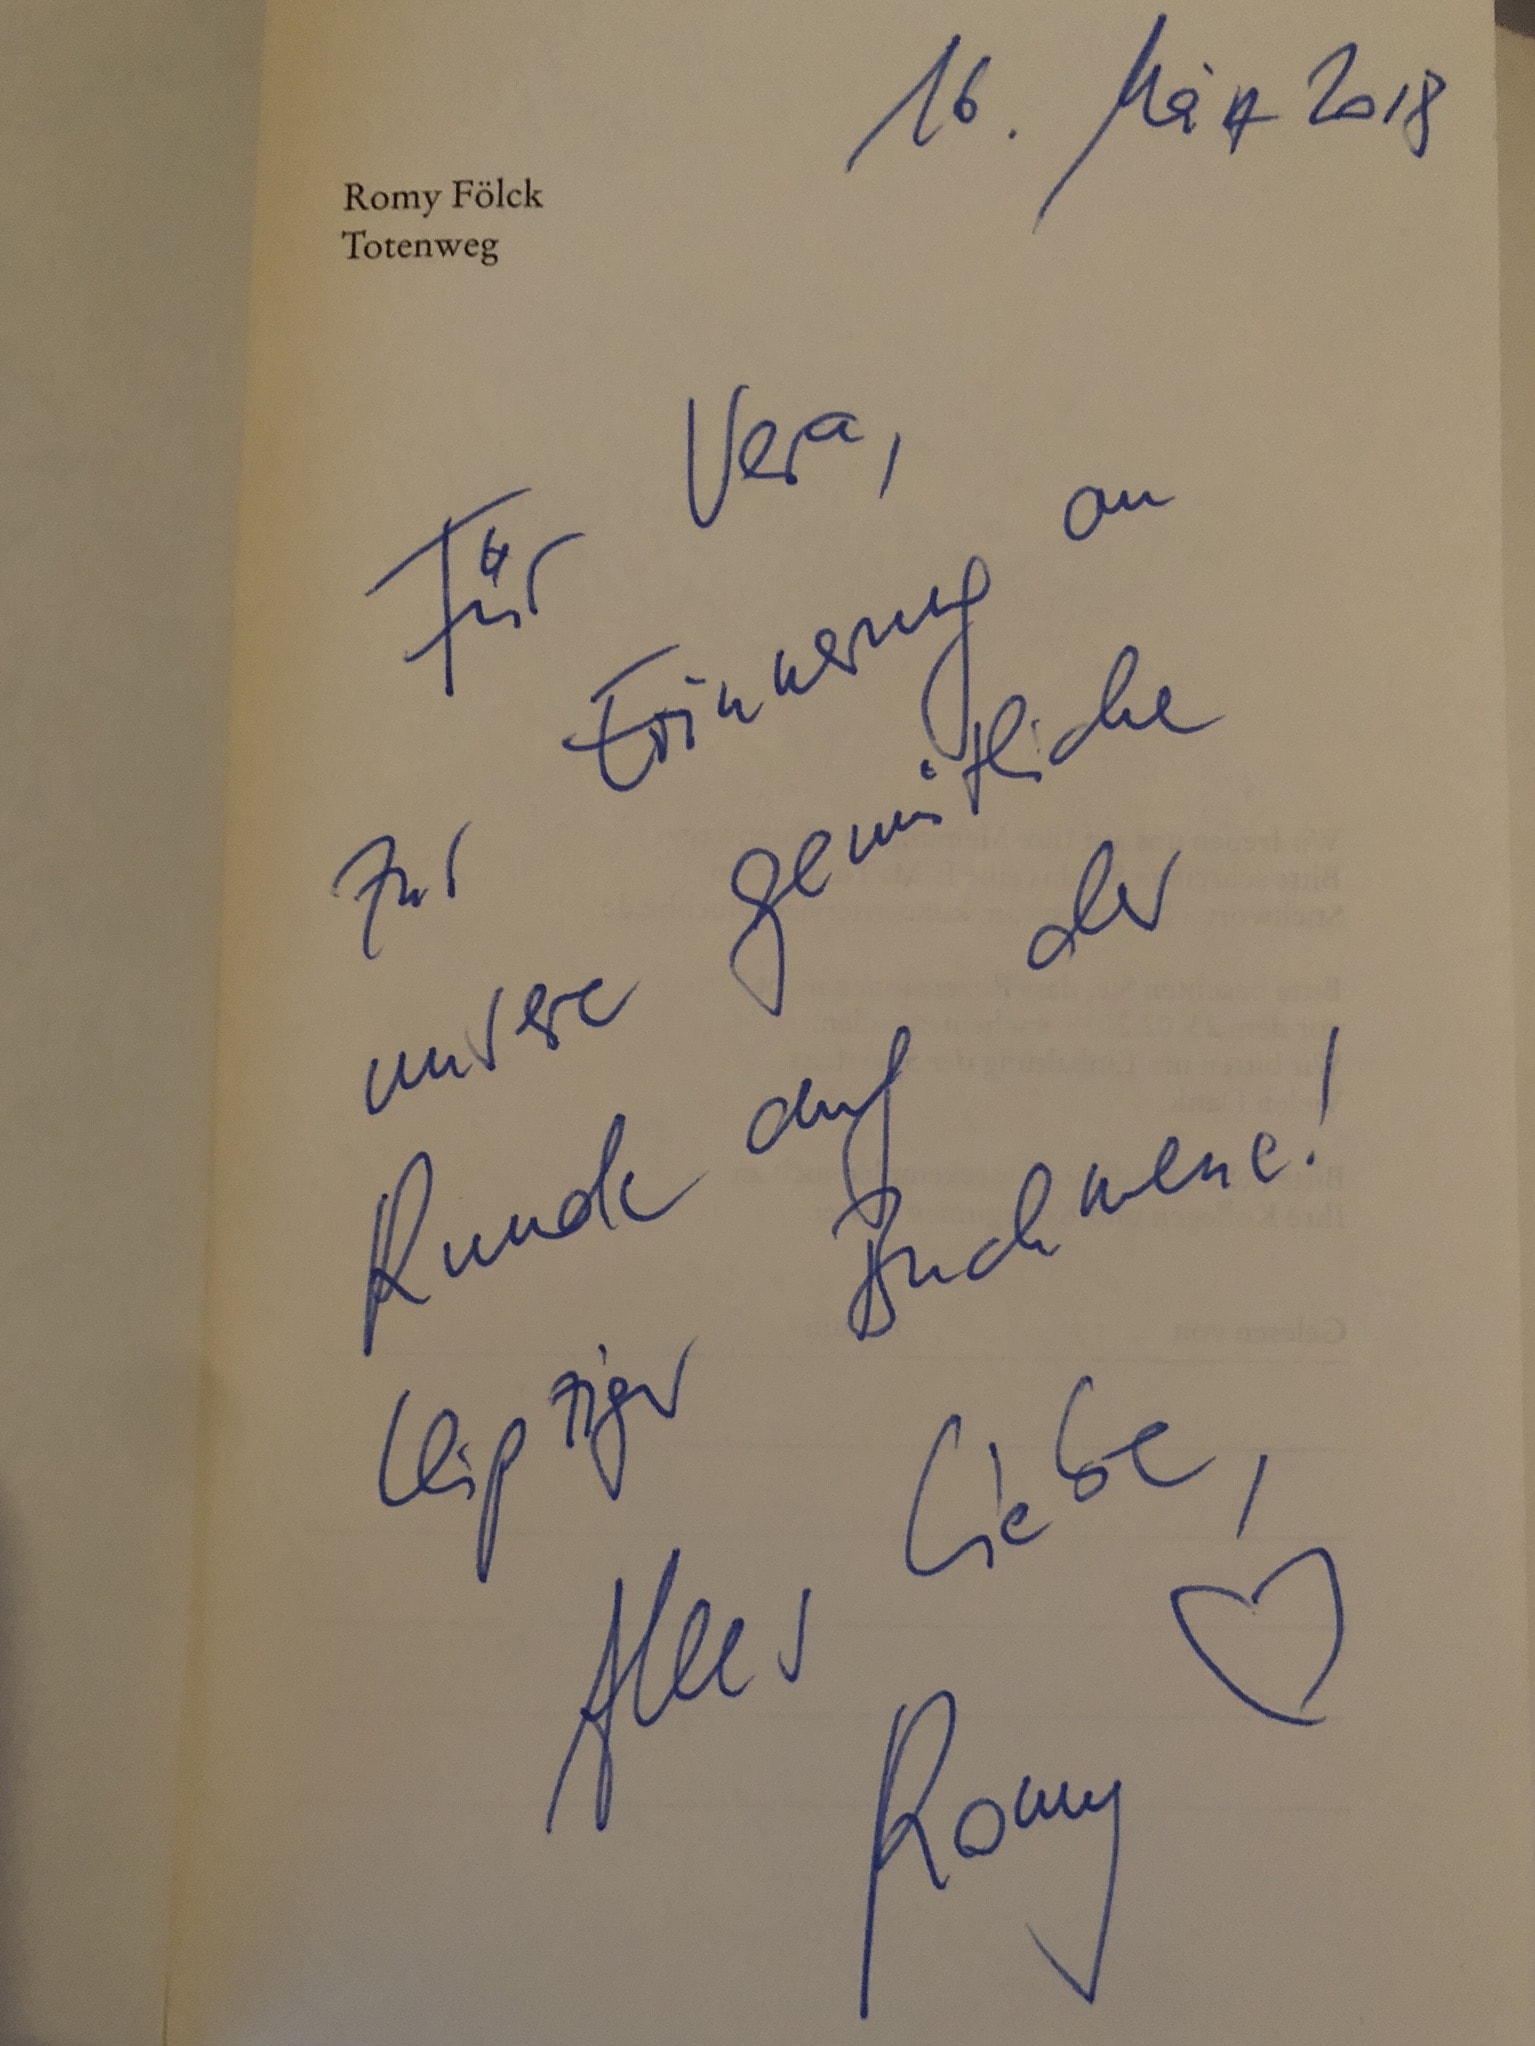 16. März 2018
Romy Fölck
Totenweg
Für Vera,
zur Erinnerung an
unsere gemütliche
Runde auf der
Leipziger Buchmesse!
Alles Liebe,
Romy